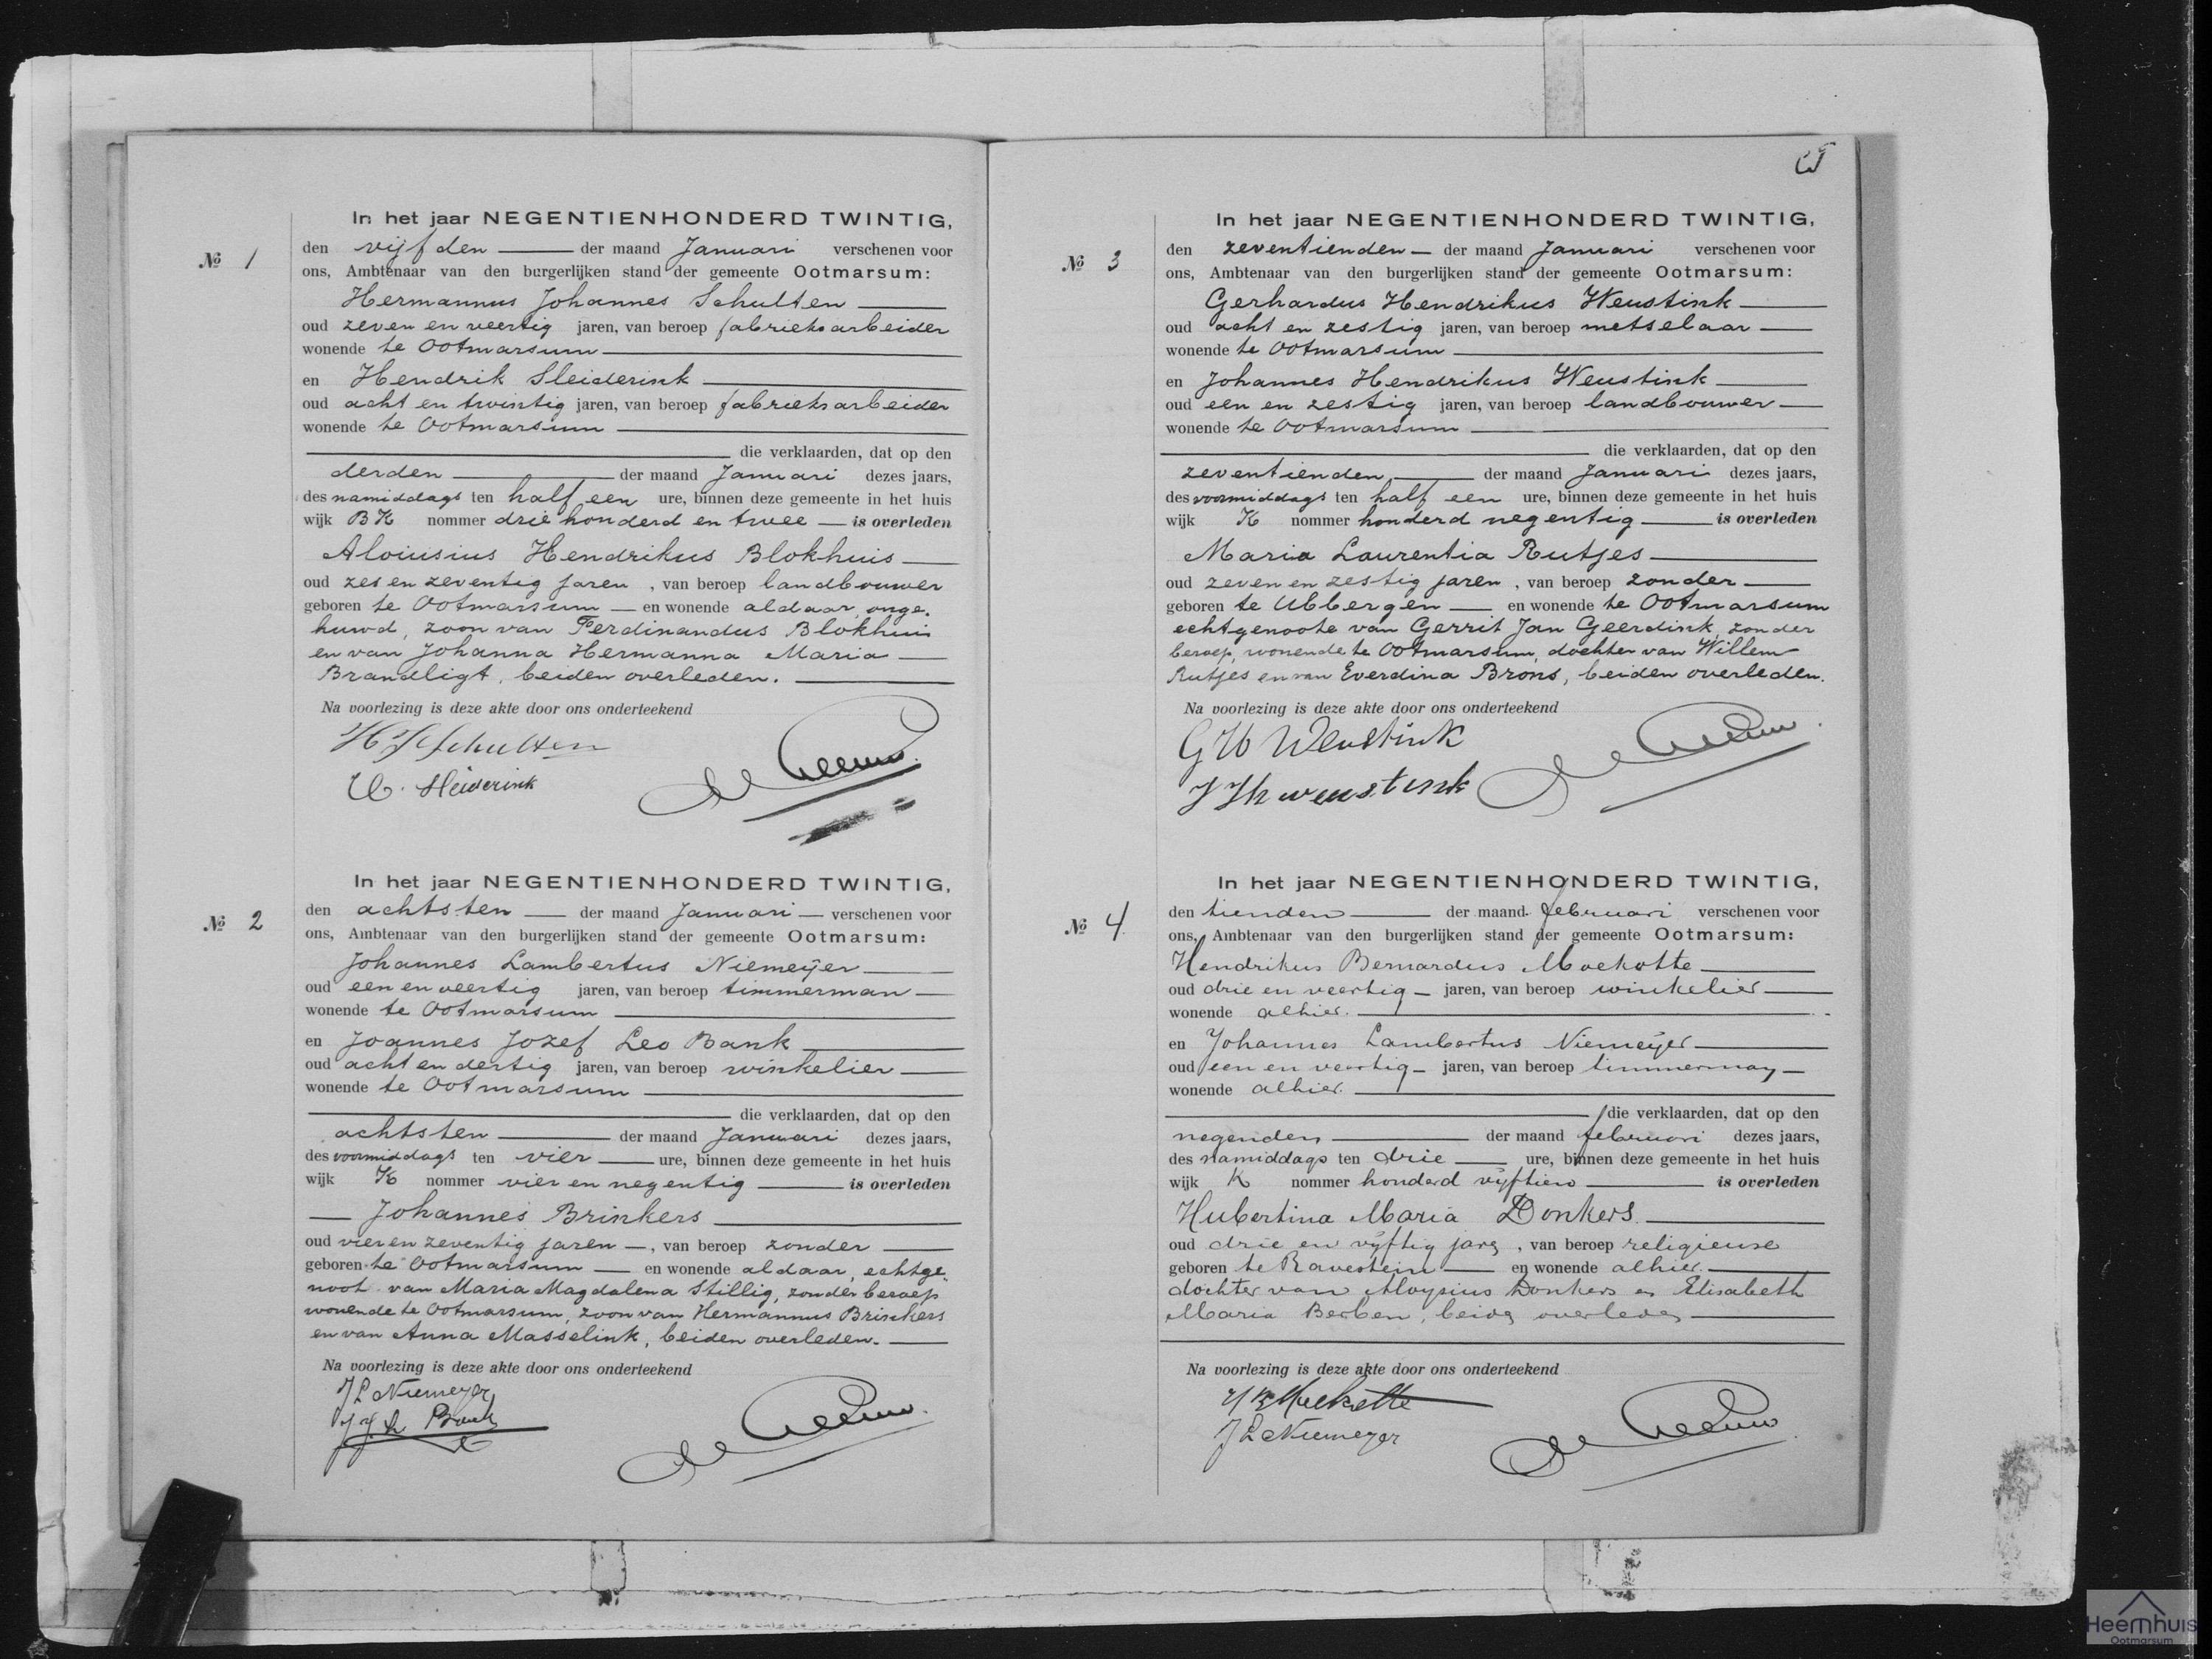 In het jaar NEGENTIENHONDERD TWINTIG,
№ 1
den vijfden der maand Januari verschenen voor
ons, Ambtenaar van den burgerlijken stand der gemeente Ootmarsum:
Hermannus Johannes Schulten
oud zeven en veertig jaren, van beroep fabrieksarbeider
wonende te Ootmarsum
en Hendrik Sleiderink
oud acht en twintig jaren, van beroep fabrieksarbeider
wonende te Ootmarsum
die verklaarden, dat op den
derden der maand Januari dezes jaars,
des namiddags ten half een ure, binnen deze gemeente in het huis
wijk BK nommer drie honderd en twee is overleden
Aloiisius Hendrikus Blokhuis
oud zes en zeventig jaren, van beroep landbouwer
geboren te Ootmarsum en wonende aldaar, onge-
huwd, zoon van Ferdinandus Blokhuis
en van Johanna Hermanna Maria
Brandligt, beiden overleden.
Na voorlezing is deze akte door ons onderteekend
H J Schulten
H. Sleiderink
In het jaar NEGENTIENHONDERD TWINTIG,
№ 2
den achtsten der maand Januari verschenen voor
ons, Ambtenaar van den burgerlijken stand der gemeente Ootmarsum:
Johannes Lambertus Niemeÿer
oud een en veertig jaren, van beroep timmerman
wonende te Ootmarsum
en Joannes Jozef Leo Bank
oud acht en dertig jaren, van beroep winkelier
wonende te Ootmarsum
die verklaarden, dat op den
achtsten der maand Januari dezes jaars,
des voormiddags ten vier ure, binnen deze gemeente in het huis
wijk K nommer vier en negentig is overleden
Johannes Brinkers
oud vier en zeventig jaren, van beroep zonder
geboren te Ootmarsum en wonende aldaar, echtge-
noot van Maria Magdalena Stillig, zonder beroep
wonende te Ootmarsum, zoon van Hermannus Brinkers
en van Anna Masselink, beiden overleden.
Na voorlezing is deze akte door ons onderteekend
J L Niemeyer
J. J. L. Bank
3
In het jaar NEGENTIENHONDERD TWINTIG,
№ 3
den zeventienden der maand Januari verschenen voor
ons, Ambtenaar van den burgerlijken stand der gemeente Ootmarsum:
Gerhardus Hendrikus Weustink
oud acht en zestig jaren, van beroep metselaar
wonende te Ootmarsum
en Johannes Hendrikus Weustink
oud een en zestig jaren, van beroep landbouwer
wonende te Ootmarsum
die verklaarden, dat op den
zeventienden der maand Januari dezes jaars,
des voormiddags ten half een ure, binnen deze gemeente in het huis
wijk K nommer honderd negentig is overleden
Maria Laurentia Rutjes
oud zeven en zestig jaren, van beroep zonder
geboren te Ubbergen en wonende te Ootmarsum
echtgenoote van Gerrit Jan Geerdink, zonder
beroep, wonende te Ootmarsum, dochter van Willem
Rutjes en van Everdina Brons, beiden overleden.
Na voorlezing is deze akte door ons onderteekend
G H Weustink
J H weustink
In het jaar NEGENTIENHONDERD TWINTIG,
№ 4
den tienden der maand februari verschenen voor
ons, Ambtenaar van den burgerlijken stand der gemeente Ootmarsum:
Hendrikus Bernardus Moekotte
oud drie en veertig jaren, van beroep winkelier
wonende alhier.
en Johannes Lambertus Niemeÿer
oud een en veertig jaren, van beroep timmerman
wonende alhier.
die verklaarden, dat op den
negenden der maand februari dezes jaars,
des namiddags ten drie ure, binnen deze gemeente in het huis
wijk K nommer honderd vÿftien is overleden
Hubertina Maria Donkers
oud drie en vÿftig jaren, van beroep religieuse
geboren te Ravestein en wonende alhier.
dochter van Aloysius Donkers en Elisabeth
Maria Berben, beiden overleden
Na voorlezing is deze akte door ons onderteekend
H B Moekotte
J L Niemeyer
Heemhuis
Ootmarsum